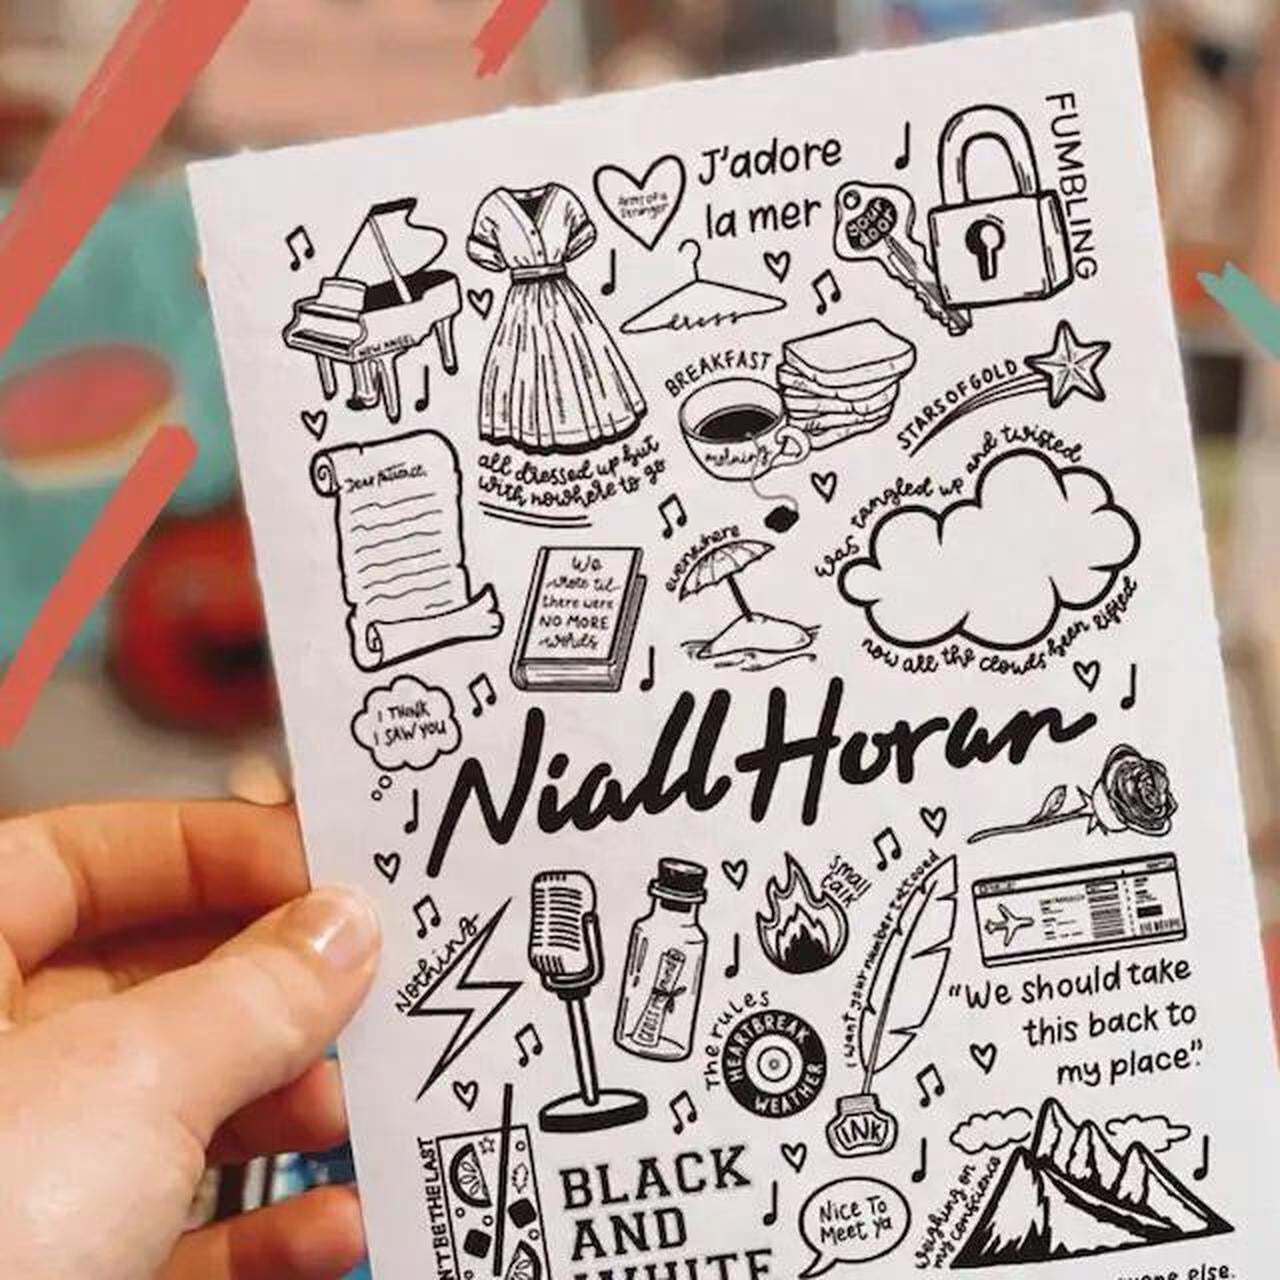 J'adore
la mer
FUMBLING
Arms of a
Stranger
your
door
dress
NEW ANGEL
BREAKFAST
morning
STARS OF GOLD
all dressed up but
with nowhere to go
Dear Patience,
was tangled up and twisted
now all the clouds been lifted
everywhere
We
wrote til
there were
NO MORE
words
I THINK
I SAW YOU
Niall Horan
Nothing
small
talk
I want your number tattooed
CROSS YOUR MIND
The rules
HEARTBREAK
WEATHER
INK
"We should take
this back to
my place."
N'T BE THE LAST
BLACK
AND
WHITE
Nice To
Meet ya
weighing on
my conscience
else.